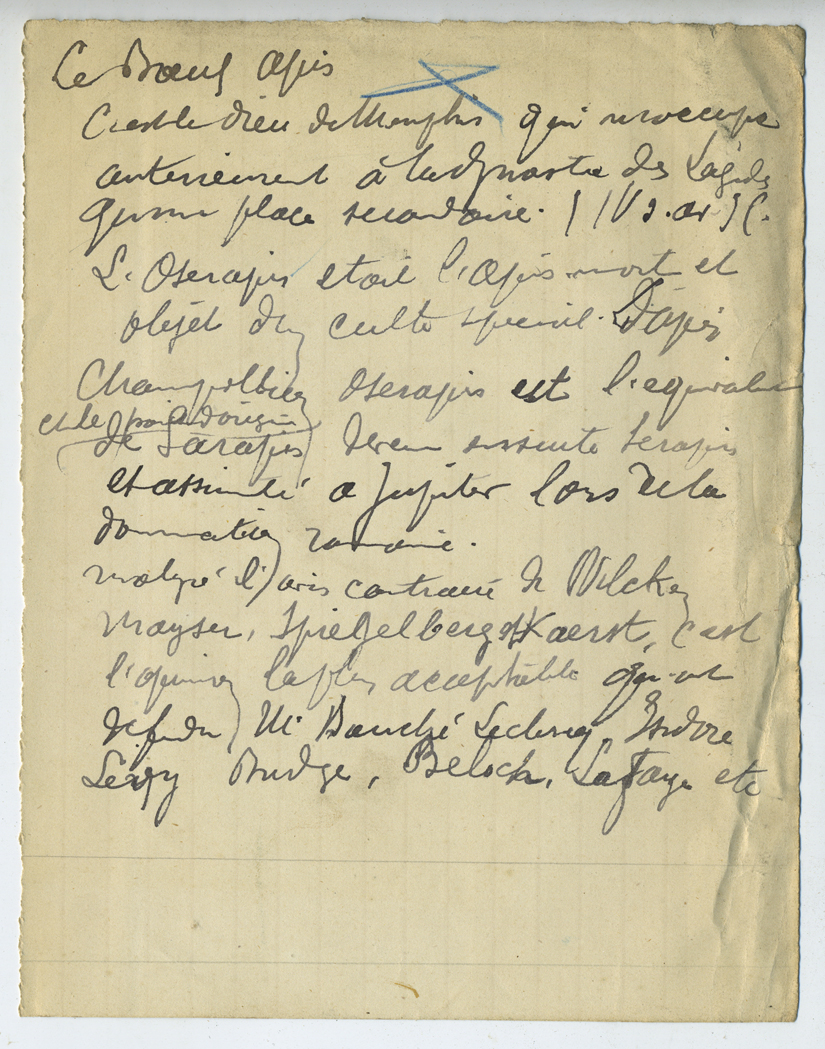 Le Bœuf Apis
C'est le dieu de Memphis qui n'occupe
anterieurement à la dynastie des Lagides
qu'une place secondaire. (IV s. av J C.
L'Oserapis etait l'Apis mort et
objet d'un culte special. D'apis
Champollion Oserapis est l'equivalent
et le point d'origine
de Sarapis devenu ensuite Serapis
et assimilé a Jupiter lors de la
domination romaine.
malgré l'avis contraire de Wilcken
Mayser, Spiegelberg et Kaerst, c'est
l'opinion la plus acceptable qu'ont
defendu Mr Bouché Leclercq, Isidore
Levy Budge, Beloch, Lafaye etc